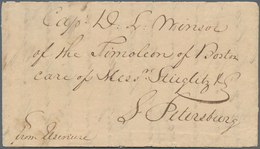 Capt. D. L. Winsor
of the Timoleon of Boston
care of Messrs Stieglitz & Co
St Petersburg